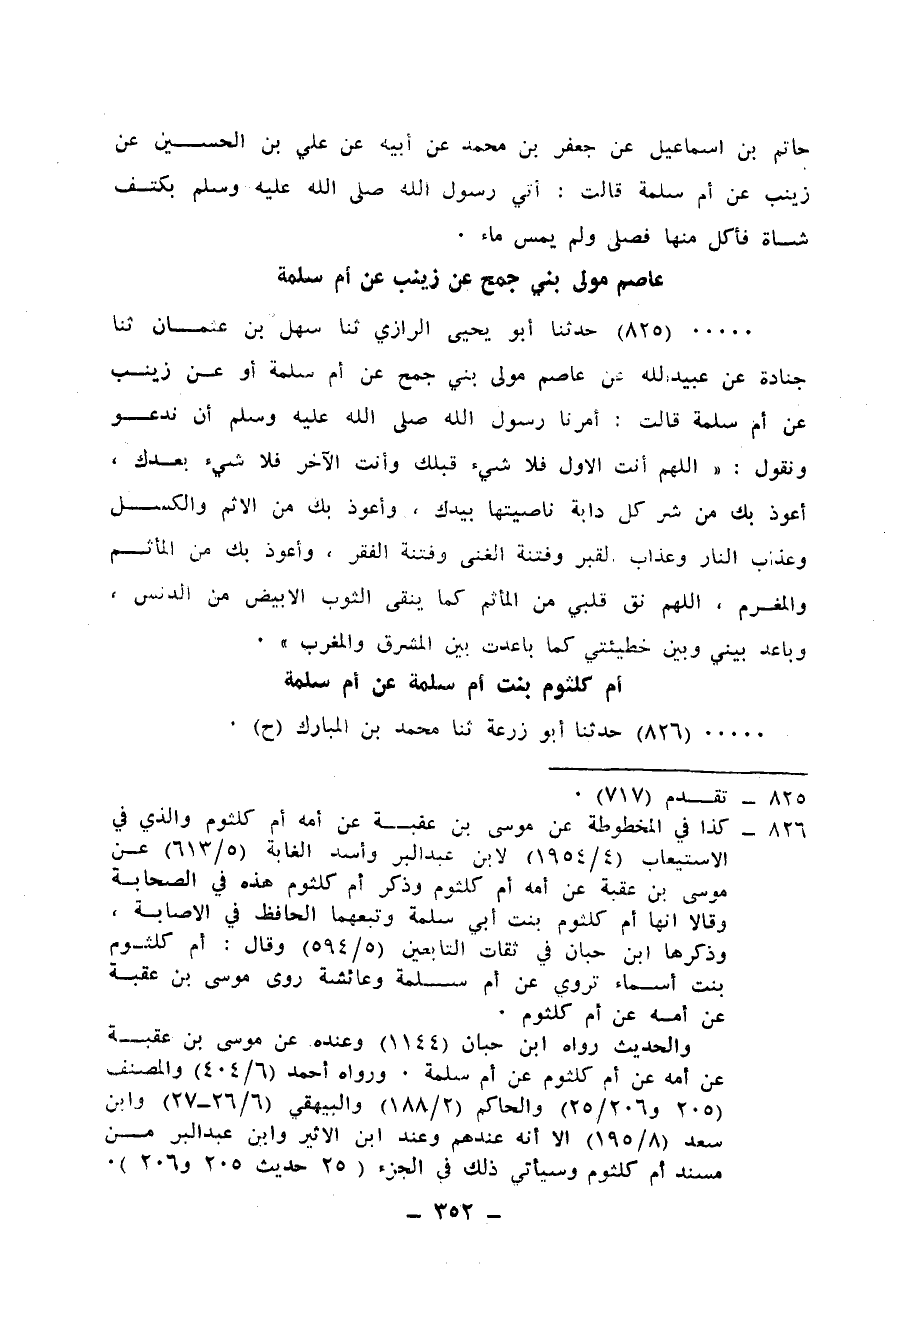 حاتم بن اسماعيل عن جعفر بن محمد عن أبيه عن علي بن الحسين عن
زينب عن أم سلمة قالت : أتي رسول الله صلى الله عليه وسلم بكتف
شاة فأكل منها فصلى ولم يمس ماء ٠
عاصم مولى بني جمح عن زينب عن أم سلمة
٠٠٠٠٠ (٨٢٥) حدثنا أبو يحيى الرازي ثنا سهل بن عثمان ثنا
جنادة عن عبيدالله عن عاصم مولى بني جمح عن أم سلمة أو عن زينب
عن أم سلمة قالت : أمرنا رسول الله صلى الله عليه وسلم أن ندعو
ونقول : « اللهم أنت الاول فلا شيء قبلك وأنت الآخر فلا شيء بعدك ،
أعوذ بك من شر كل دابة ناصيتها بيدك ، وأعوذ بك من الاثم والكسل
وعذاب النار وعذاب القبر وفتنة الغنى وفتنة الفقر ، وأعوذ بك من المأثم
والمغرم ، اللهم نق قلبي من المأثم كما ينقى الثوب الابيض من الدنس ،
وباعد بيني وبين خطيئتي كما باعدت بين المشرق والمغرب » ٠
أم كلثوم بنت أم سلمة عن أم سلمة
٠٠٠٠٠ (٨٢٦) حدثنا أبو زرعة ثنا محمد بن المبارك (ح) ٠
٨٢٥ ــ تقدم (٧١٧) ٠
٨٢٦ ــ كذا في المخطوطة عن موسى بن عقبة عن أمه أم كلثوم والذي في
الاستيعاب (١٩٥٤/٤) لابن عبدالبر وأسد الغابة (٦١٣/٥) عن
موسى بن عقبة عن أمه أم كلثوم وذكر أم كلثوم هذه في الصحابة
وقالا انها أم كلثوم بنت أبي سلمة وتبعهما الحافظ في الاصابة ،
وذكرها ابن حبان في ثقات التابعين (٥٩٤/٥) وقال : أم كلثوم
بنت أسماء تروي عن أم سلمة وعائشة روى موسى بن عقبة
عن أمه عن أم كلثوم ٠
والحديث رواه ابن حبان (١١٤٤) وعنده عن موسى بن عقبة
عن أمه عن أم كلثوم عن أم سلمة ٠ ورواه أحمد (٤٠٤/٦) والمصنف
(٢٠٥ و٢٥/٢٠٦) والحاكم (١٨٨/٢) والبيهقي (٢٦/٦ــ٢٧) وابن
سعد (١٩٥/٨) الا أنه عندهم وعند ابن الاثير وابن عبدالبر من
مسند أم كلثوم وسيأتي ذلك في الجزء ( ٢٥ حديث ٢٠٥ و٢٠٦ )٠
ــ ٣٥٢ ــ